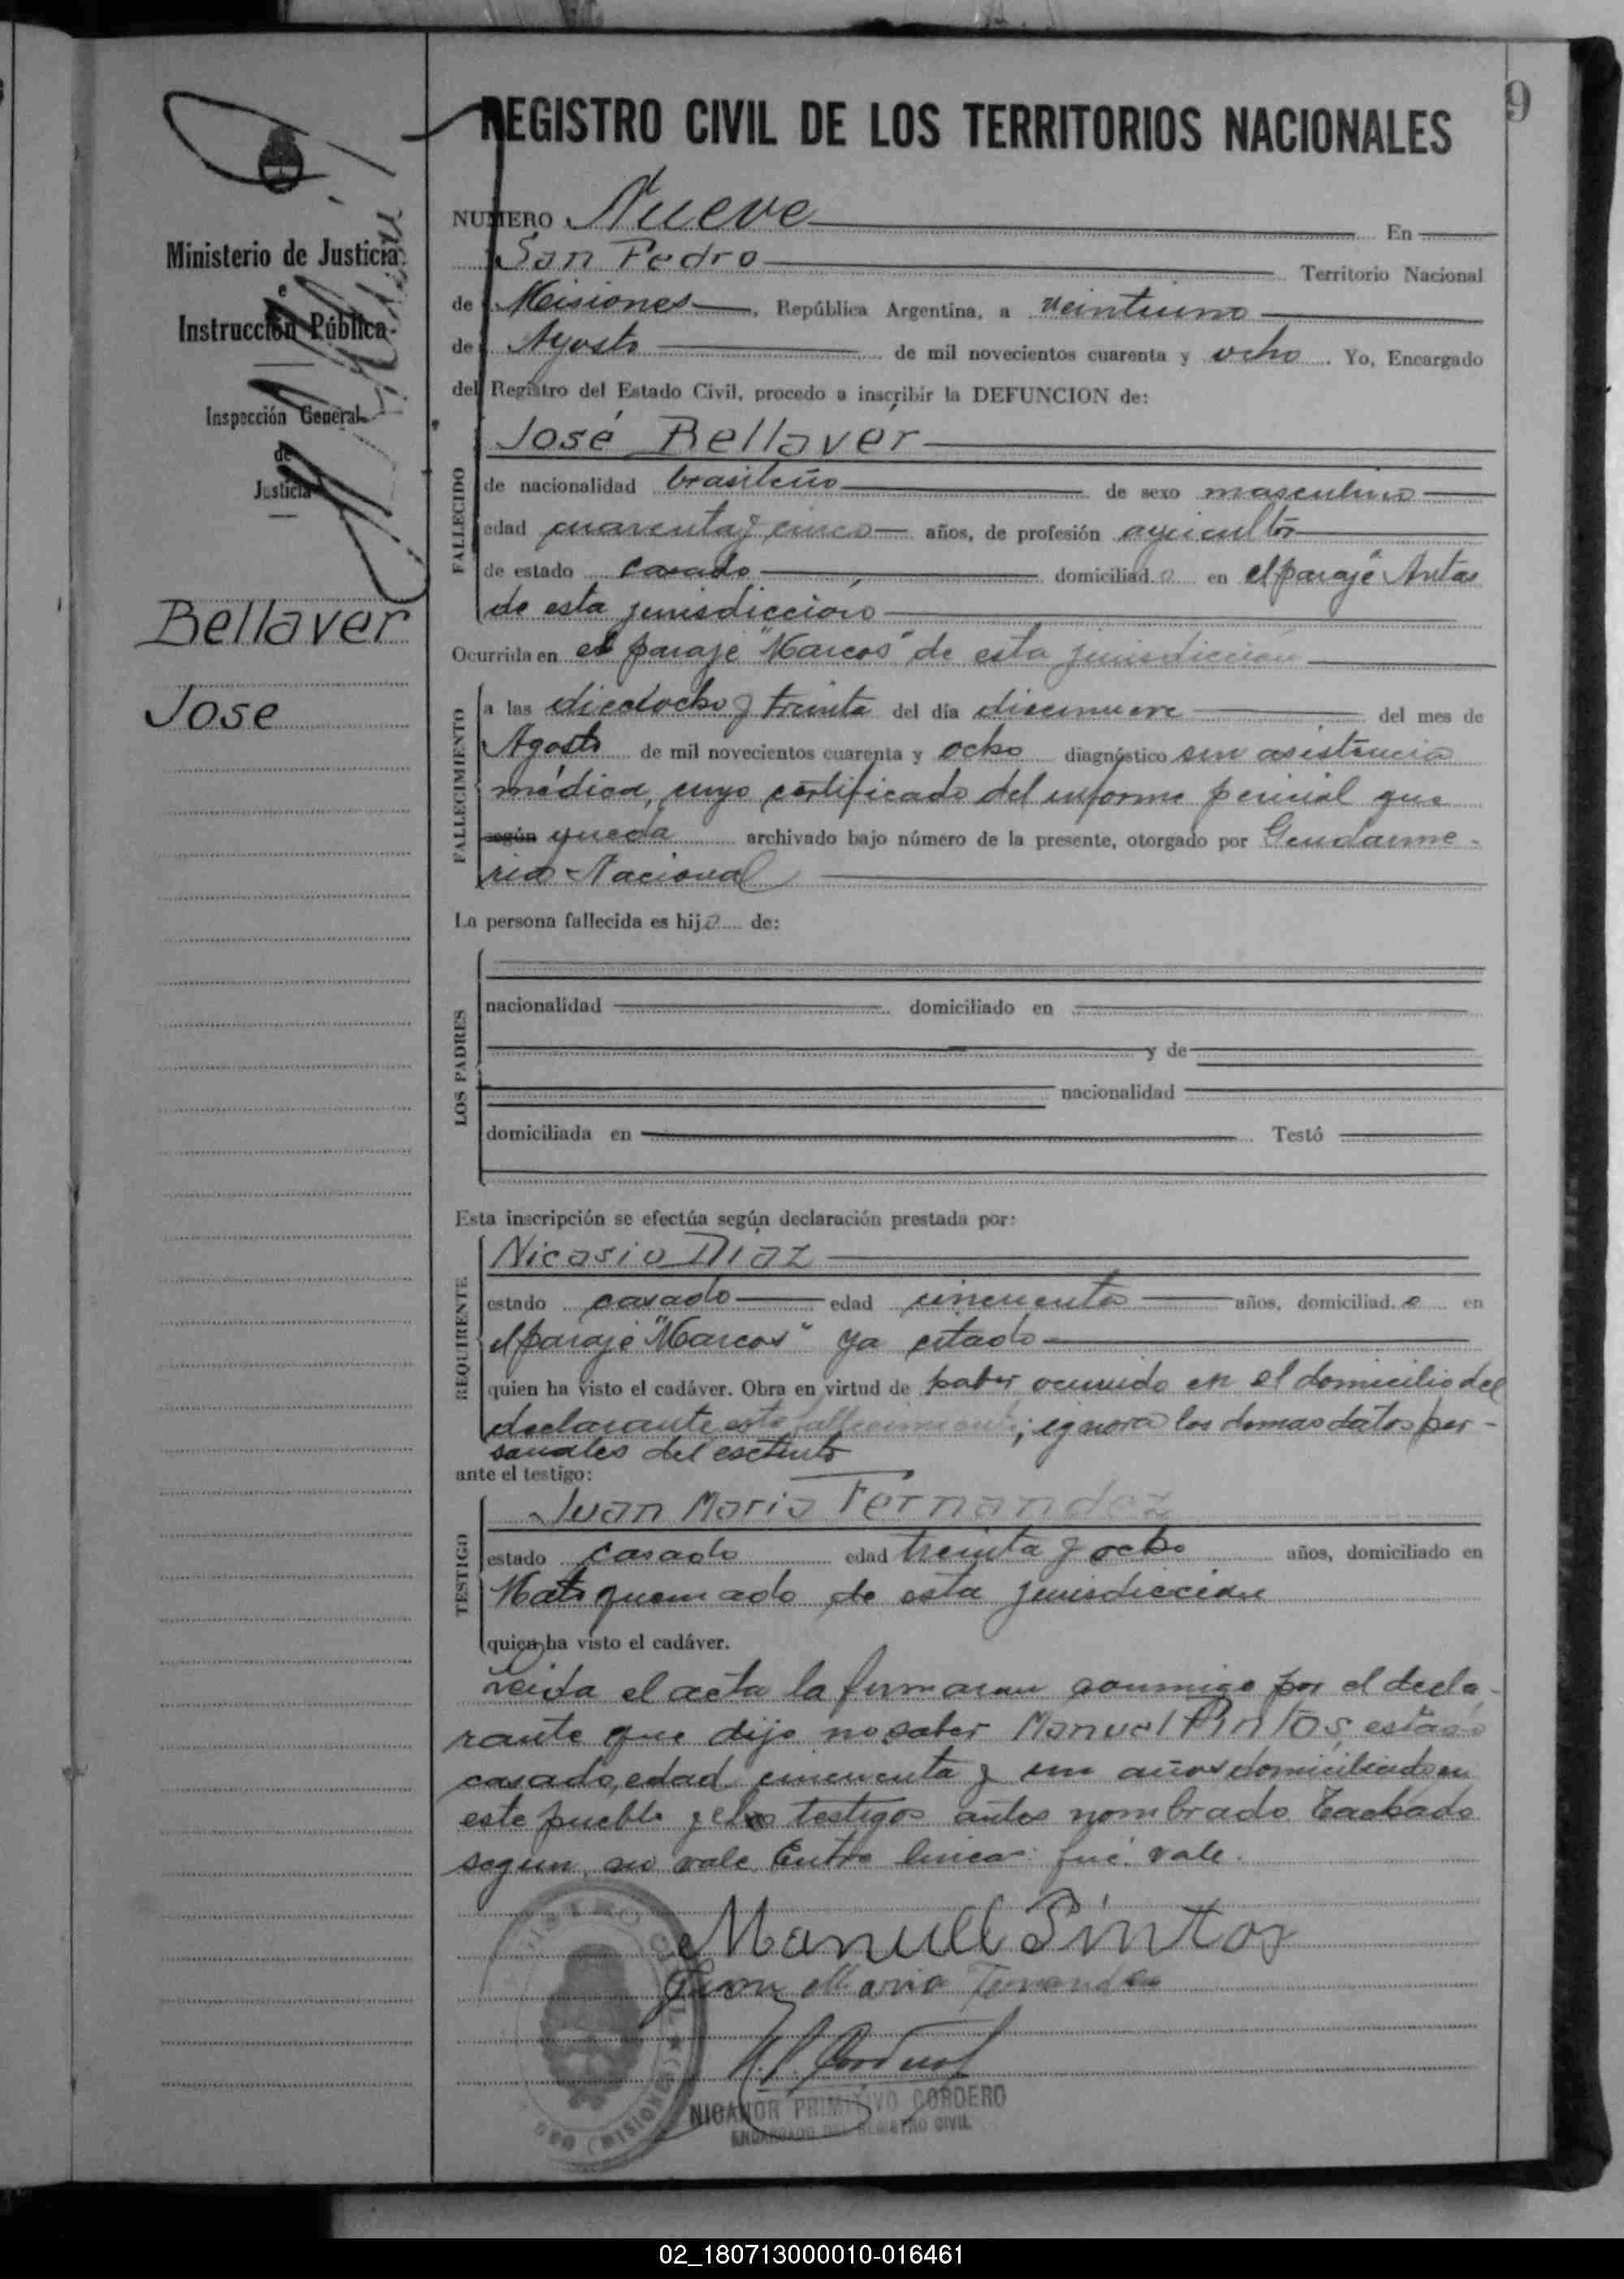 9
REGISTRO CIVIL DE LOS TERRITORIOS NACIONALES
Ministerio de Justicia
e
Instrucción Pública
Inspección General
de
Justicia
Bellaver
Jose
NUMERO Nueve En
San Pedro Territorio Nacional
de Misiones, República Argentina, a veintiuno
de Agosto de mil novecientos cuarenta y ocho. Yo, Encargado
del Registro del Estado Civil, procedo a inscribir la DEFUNCION de:
FALLECIDO
José Bellaver
de nacionalidad brasileño de sexo masculino
edad cuarenta y cinco años, de profesión agricultor
de estado casado domiciliado en el paraje Antas
de esta jurisdicción
Ocurrida en el paraje "Marcos" de esta jurisdicción
FALLECIMIENTO
a las dieciocho y treinta del día diecinueve del mes de
Agosto de mil novecientos cuarenta y ocho diagnóstico sin asistencia
médica, cuyo certificado del informe pericial que
según queda archivado bajo número de la presente, otorgado por Gendarme-
ria Nacional
La persona fallecida es hijo de:
LOS PADRES
nacionalidad domiciliado en
y de
nacionalidad
domiciliada en Testó
Esta inscripción se efectúa según declaración prestada por:
REQUIRENTE
Nicasio Díaz
estado casado edad cincuenta años, domiciliado en
el paraje "Marcos" ya citado
quien ha visto el cadáver. Obra en virtud de haber ocurrido en el domicilio del
declarante este fallecimiento; ignora los demas datos per-
sonales del extinto
ante el testigo:
TESTIGO
Juan Maria Fernandez
estado casado edad treinta y ocho años, domiciliado en
Mate quemado de esta jurisdicción
quien ha visto el cadáver.
Leida el acta la firmaron conmigo por el decla-
rante que dijo no saber Manuel Pintos, estado
casado, edad cincuenta y un años domiciliado en
este pueblo y el testigos antes nombrado Tachado
segun no vale Entre linea: fué vale.
Manuel Pintos
Juan Maria Fernandez
NICANOR PRIMITIVO CORDERO
ENCARGADO DEL REGISTRO CIVIL
02_180713000010-016461